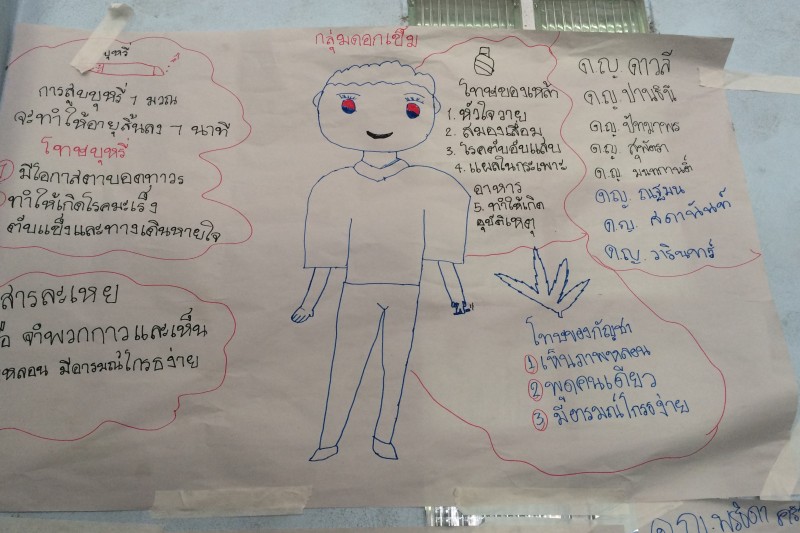 กลุ่มดอกเข็ม
บุหรี่
การสูบบุหรี่ 1 มวณ
จะทำให้อายุสั้นลง 7 นาที
โทษบุหรี่
1 มีโอกาสตาบอดถาวร
ทำให้เกิดโรคมะเร็ง
ตับแข็งและทางเดินหายใจ
สารละเหย
จำพวกกาวและเห็น
หลอน มีอารมณ์โกรธง่าย
โทษของเหล้า
1. หัวใจวาย
2. สมองเสื่อม
3. โรคตับอับเสบ
4. แผลในกระเพาะ
อาหาร
5. ทำให้เกิด
อุบัติเหตุ
ด.ญ. ดาวลี
ด.ญ.
ด.ญ.
ด.ญ. สุพัตรา
ด.ญ.
ด.ญ. ณฐมน
ด.ญ.
ด.ญ.
โทษของกัญชา
1 เห็นภาพหลอน
2 พูดคนเดียว
3 มีอารมณ์โกรธง่าย
ด.ญ.